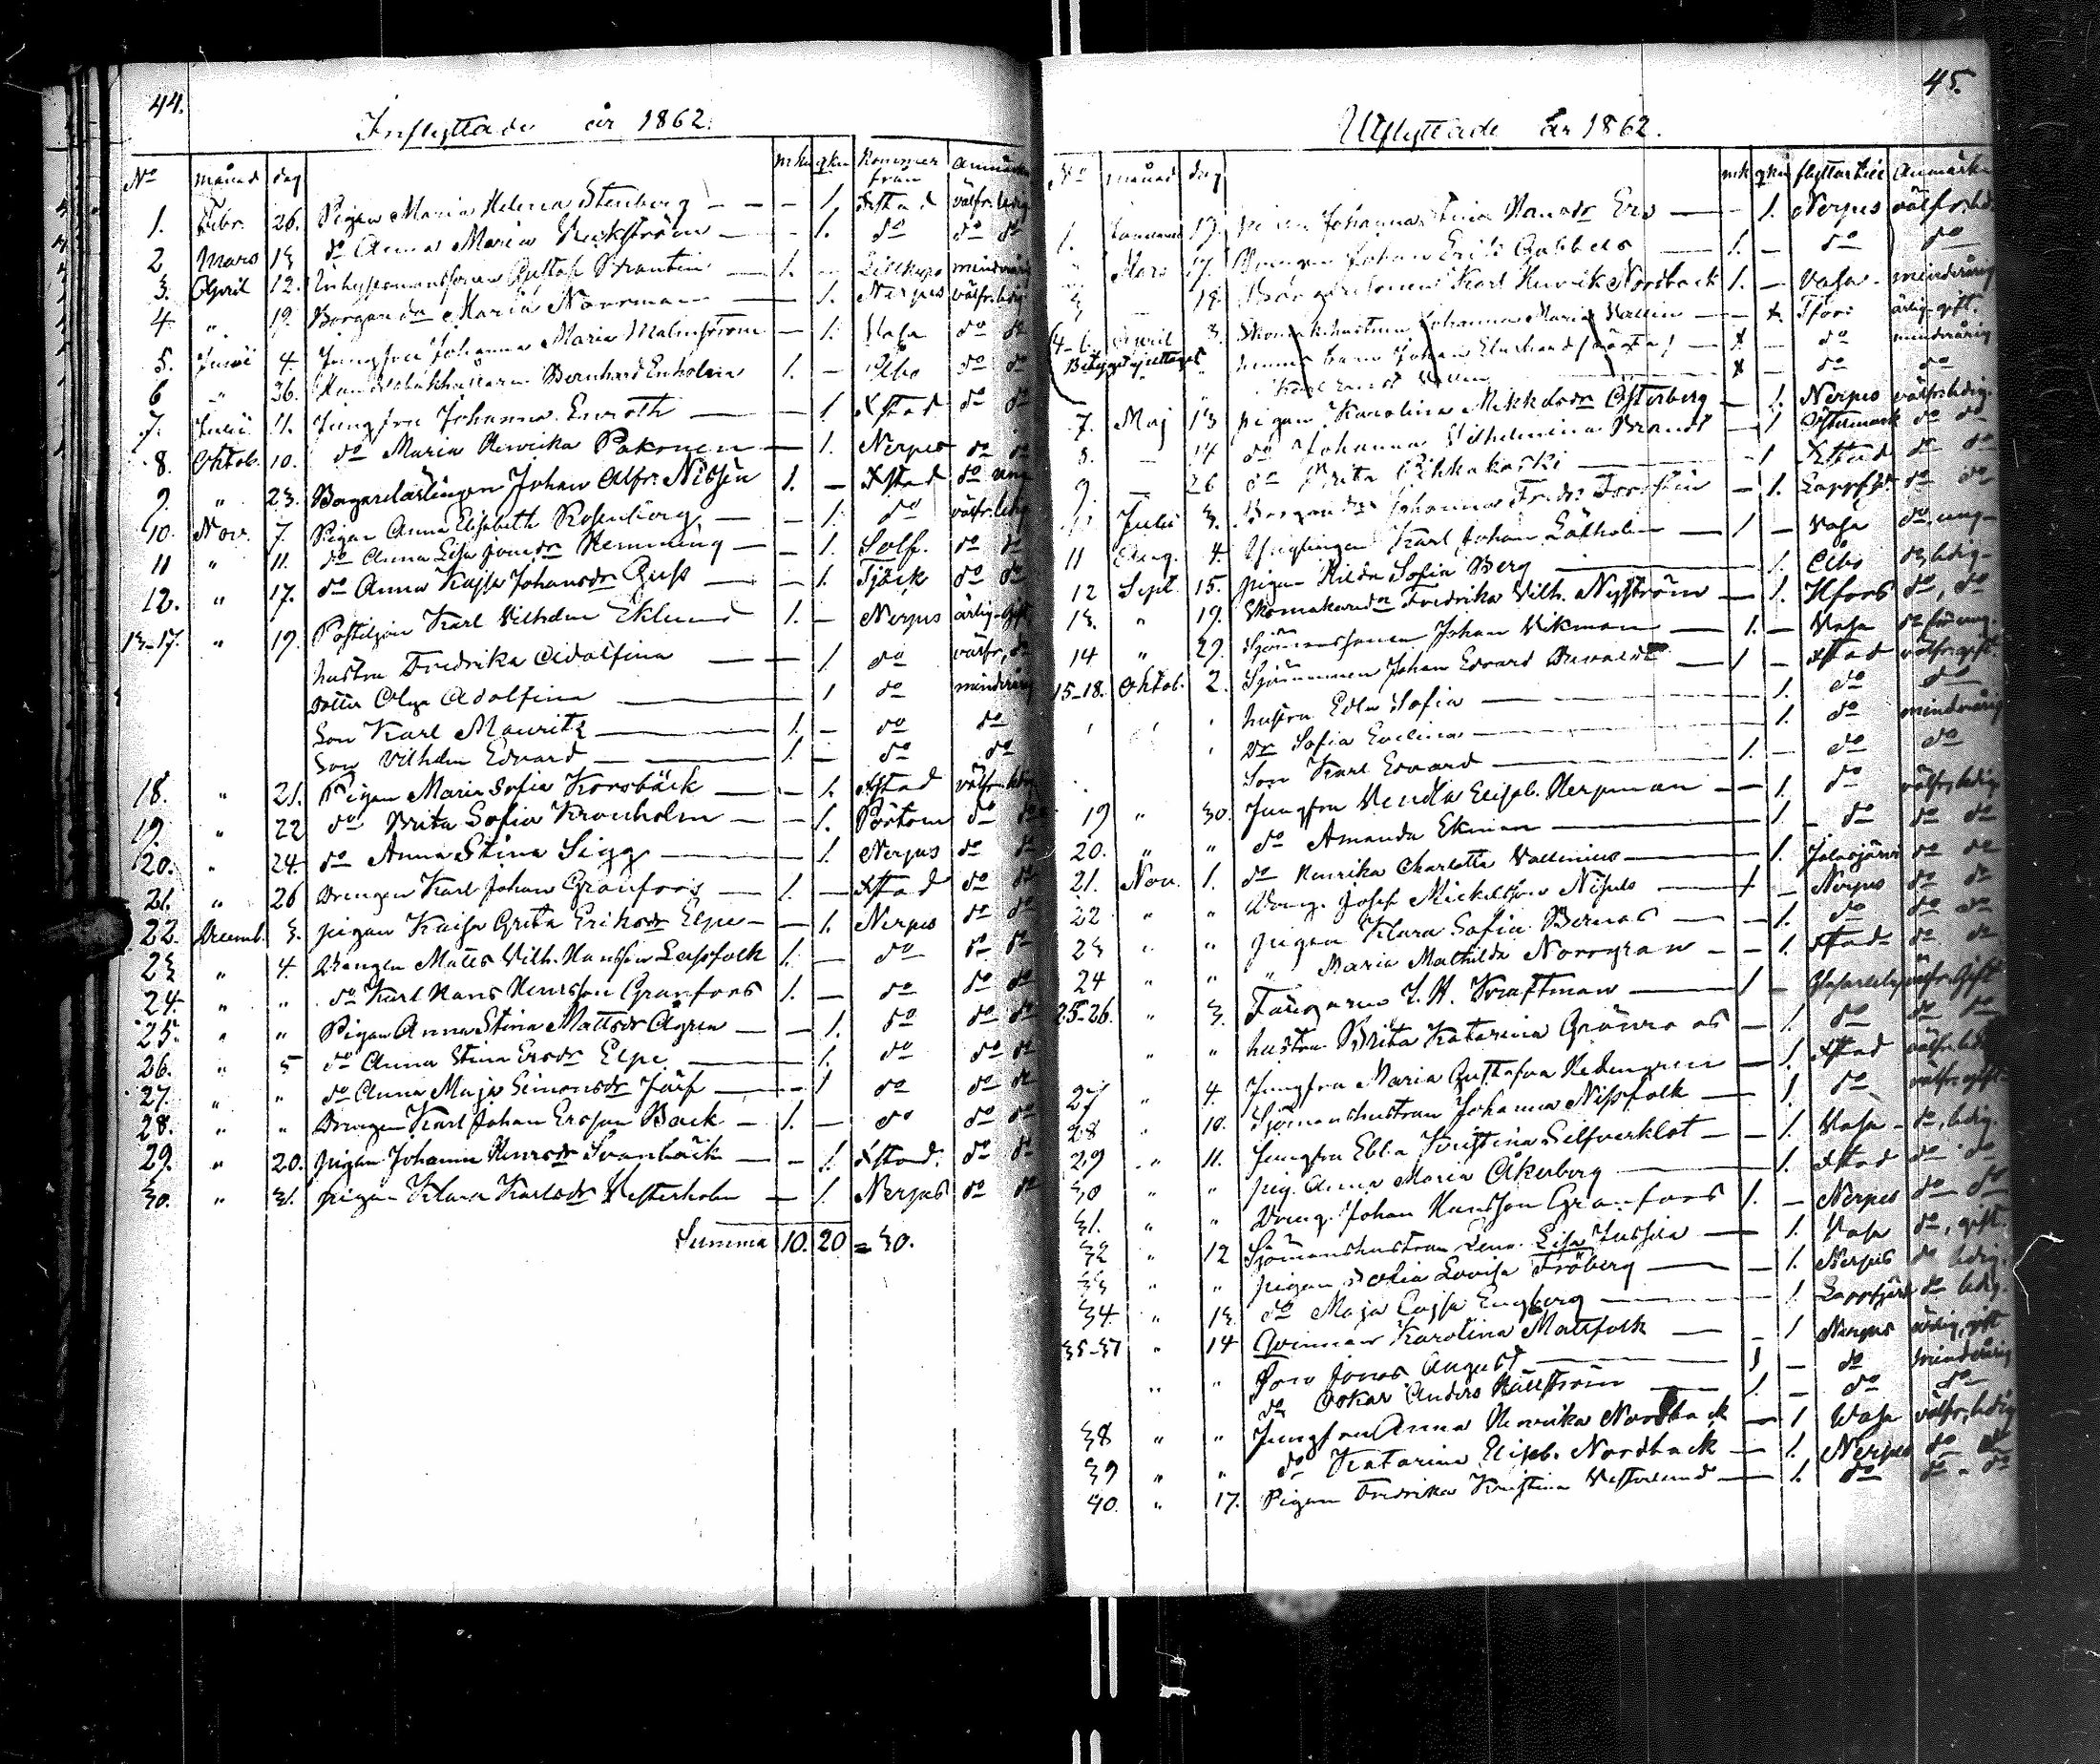 44.
Inflyttade år 1862.
No månad dag mkn qkn kommer från Anmärkn
1. Febr. 26. Pigan Maria Helena Stenberg - - - 1. Xstad välfr. ledig
2 Mars 13 do Anna Maria Heckström - - 1. do do do
3. April 12. Inhysesmanssonen Gustaf Brantin - 1. - minderårig
4. " 19. Borgare dr Maria Norrman - 1. Nerpes välfr. ledig
5. Junii 4. Jungfru Johanna Maria Malmström - 1. Vasa do do
6 " 26. Handelsbokhållaren Bernhard Enholm 1. - Åbo do do
7. Julii 11. Jungfru Johanna Enroth - - 1 Xstad do do
8. Oktob. 10. do Maria Henrika Pakonen - 1. Nerpes do do
9. " 23. Bagarelärlingen Johan Alfr. Nissén 1. - Xstad do ung
10. Nov. 7. Pigan Anna Elisabeth Rosenberg - - 1. do välfr. ledig
11 " 11. do Anna Lisa Hemming - - 1. Solf. do do
12. " 17. do Anna Kajsa Johansdr Guss - - 1. Tjöck do do
13-17. " 19. Postiljon Karl Vilhelm Eklund 1. - Nerpes ärlig. gift
hustru Fredrika Adolfina - - 1 do välfr. do
dotter Olga Adolfina - 1 do minderårig
Son Karl Mauritz - 1. - do do
Son Vilhelm Edvard - 1. - do do
18. " 21. Pigan Maria Sofia Korsbäck - - 1. Xstad välfr. ledig
19. " 22 do Brita Sofia Kronholm - - 1. Pörtom do do
20. " 24. do Anna Stina Sigg - - 1. Nerpes do do
21. " 26 Drengen Karl Johan Granfors - 1. - Xstad do do
22. Decemb. 3. pigan Kaisa Greta Eriksdr Elpe - - 1. Nerpes do do
23 " 4. Drengen Matts Vilh. Hansson Lassfolk 1. - do do do
24. " " do Karl Hans Henrsson Granfors 1. - do do do
25. " " Pigan Anna Stina Mattsdr Ågren - - 1. do do do
26. " 5 do Anna Stina Ersdr Elpe - - 1. do do do
27. " " do Anna Maja Simonsdr Järf - - 1 do do do
28. " " Drengen Karl Johan Ersson Back - 1. - do do do
29. " 20. pigan Johanna Henrsdr Svanbäck - - 1. Xstad. do do
30. " 31. pigan Klara Karlsdr Vesterholm - 1. Nerpes do do
Summa 10. 20 = 30.
45.
Utflyttade år 1862.
No månad dag mk qkn flyttar till Anmärkn
1. Januarii 17. pigan Johanna Stina Hansdr Ers - - 1. Nerpes välfr. led.
" Mars 17. Drengen Johan Erik Gabbels - 1. - do do
3 - 18. Karl Henrik Nordback 1. - Vasa. minderårig
4-6. April 3. Johanna Maria Vallin - x. ärlig gift.
Betyget ej uttaget hennes barn Johan x - do minderårig
Karl Vallin x - do do
7. Maj 13 pigan Karolina Mikkelsdr Österberg - 1. Nerpes välfr. ledig.
8. - 14 do Johanna Vilhelmina Brandt - 1 Östermark do do
9. - 26 do Brita Pihkakoski - 1 Xstad do do
Julii 3. Johanna Fredr. Forssten - 1. Lappfjd do do
11 Aug. 4. Ynglingen Karl Johan - 1 - Vasa do ung
12 Sept. 15. pigan Hilda Sofia Berg - 1. Åbo do ledig
13. " 19. Skomakaredr Fredrika Vilh. Nyström - 1. Hfors do, do
14 " 29. Sjömanssonen Johan Vikman - 1. - Vasa
15-18. Oktob. 2. Sjömannen Johan Edvard - 1 - Xstad välfr. gift
hustru Edla Sofia - 1. do do
Dr Sofia Evelina - 1. do minderårig
Son Karl Edvard - 1. - do do
19 " 30. Jungfru Vendla Elisab. Herpman - - 1. do välfr. ledig
20. " " do Amanda Ekman - 1. do do do
21. Nov. 1. do Henrika Charlotta Vallenius - 1. Jalasjärvi do do
22 " " Dreng. Josef Mickelsson Nissels - 1 - Nerpes do do
23 " " pigan Klara Sofia Bernas - - 1. do do do
24 " " " Maria Mathilda Norrgran - - 1. Xstad do do
25-26. " 3. J. H. Kraftman - 1 - välfr. gift
" " hustru Brita Katarina Grönroos - 1. do do do
27 " 4 Jungfru Maria Gustafva Hedengren - 1. Xstad välfr. ledig
28 " 10. Sjömanshustrun Johanna Nissfolk - 1. do välfr. gift
29 " 11. Jungfru Ebba Kristina Silfverklot - - 1. Vasa do, ledig.
30 " " pig. Anna Maria Åkerberg - 1. Xstad do do
31. " " Dreng. Johan Hansson Granfors 1. - Nerpes do do
32 " 12 Sjömanshustrun Lena Lisa Jussila - 1. Vasa do, gift.
33 " " pigan Sofia Lovisa Fröberg - - 1. Nerpes do ledig.
34. " 13. do Maja Cajsa Engberg - 1. Lappfjärd do ledig.
35-37 " 14 Qvinnan Karolina Mattfolk - - 1 Nerpes ärlig, gift
" " Son Jonas August - 1 - do minderårig
do Oskar Anders Hällström - 1. - do do
38 " " Jungfru Anna Henrika Nordback - 1 Vasa välfr, ledig
39 " " do Katarina Elisab. Nordback - 1. Nerpes do do
40. " 17. Pigan Fredrika Kristina Vesterlund - 1. do do do